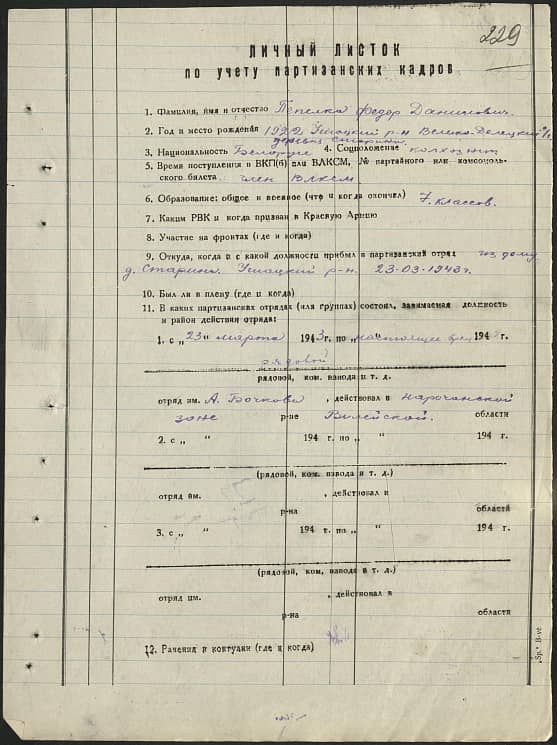 229
ЛИЧНЫЙ ЛИСТОК
по учету партизанских кадров
1. Фамилия, имя и отчество Пепелка Федор Данилович.
2. Год и место рождения 1922 Ушацкий р-н Велико-Долецкий с/с
деревня Старина
3. Национальность Белорус 4. Соцположение колхозник
5. Время поступления в ВКП(б) или ВЛКСМ, № партийного или комсомоль-
ского билета член ВЛКСМ
6. Образование: общее и военное (что и когда окончил) 7 классов.
7. Каким РВК и когда призван в Красную Армию
8. Участие на фронтах (где и когда)
9. Откуда, когда и с какой должности прибыл в партизанский отряд из дому
д. Старина Ушацкий р-н. 23-03-1943 г.
10. Был ли в плену (где и когда)
11. В каких партизанских отрядах (или группах) состоял, занимаемая должность
и район действий отряда:
1. с „ 23 “ марта 1943 г. по „ настоящее “ 194 г.
рядовой
(рядовой, ком. взвода и т. д.)
отряд им. А. Бочкова , действовал в нарочанской
зоне р-не Вилейской. области
2. с „ “ 194 г. по „ “ 194 г.
(рядовой, ком. взвода и т. д.)
отряд им. , действовал в
р-на области
3. с „ “ 194 г. по „ “ 194 г.
(рядовой, ком. взвода и т. д.)
отряд им. , действовал в
р-на области
12. Ранения и контузии (где и когда)
„Sp.“ B-ve